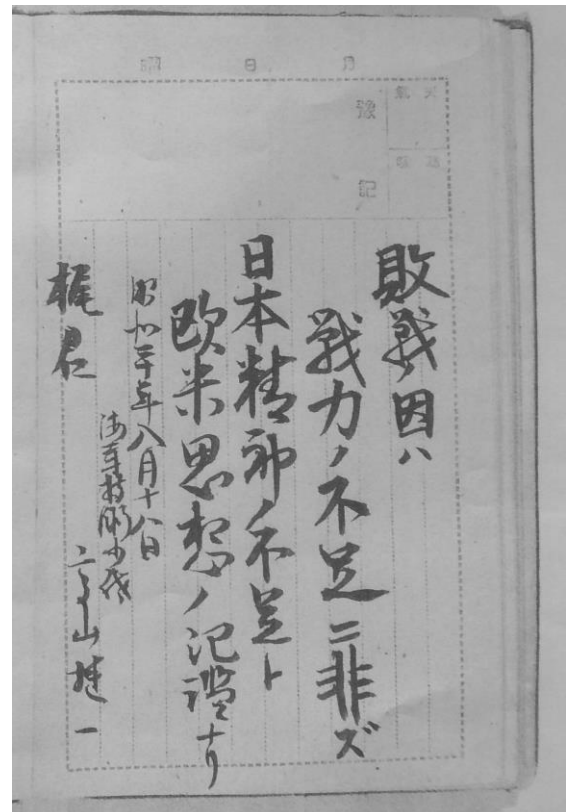 月 日 曜
天気
豫記
敗戦ノ因ハ
戦力ノ不足ニ非ズ
日本精神ノ不足ト
欧米思想ノ氾濫ナリ
昭和二十年八月十八日
海軍技術少佐
高山捷一
梶君